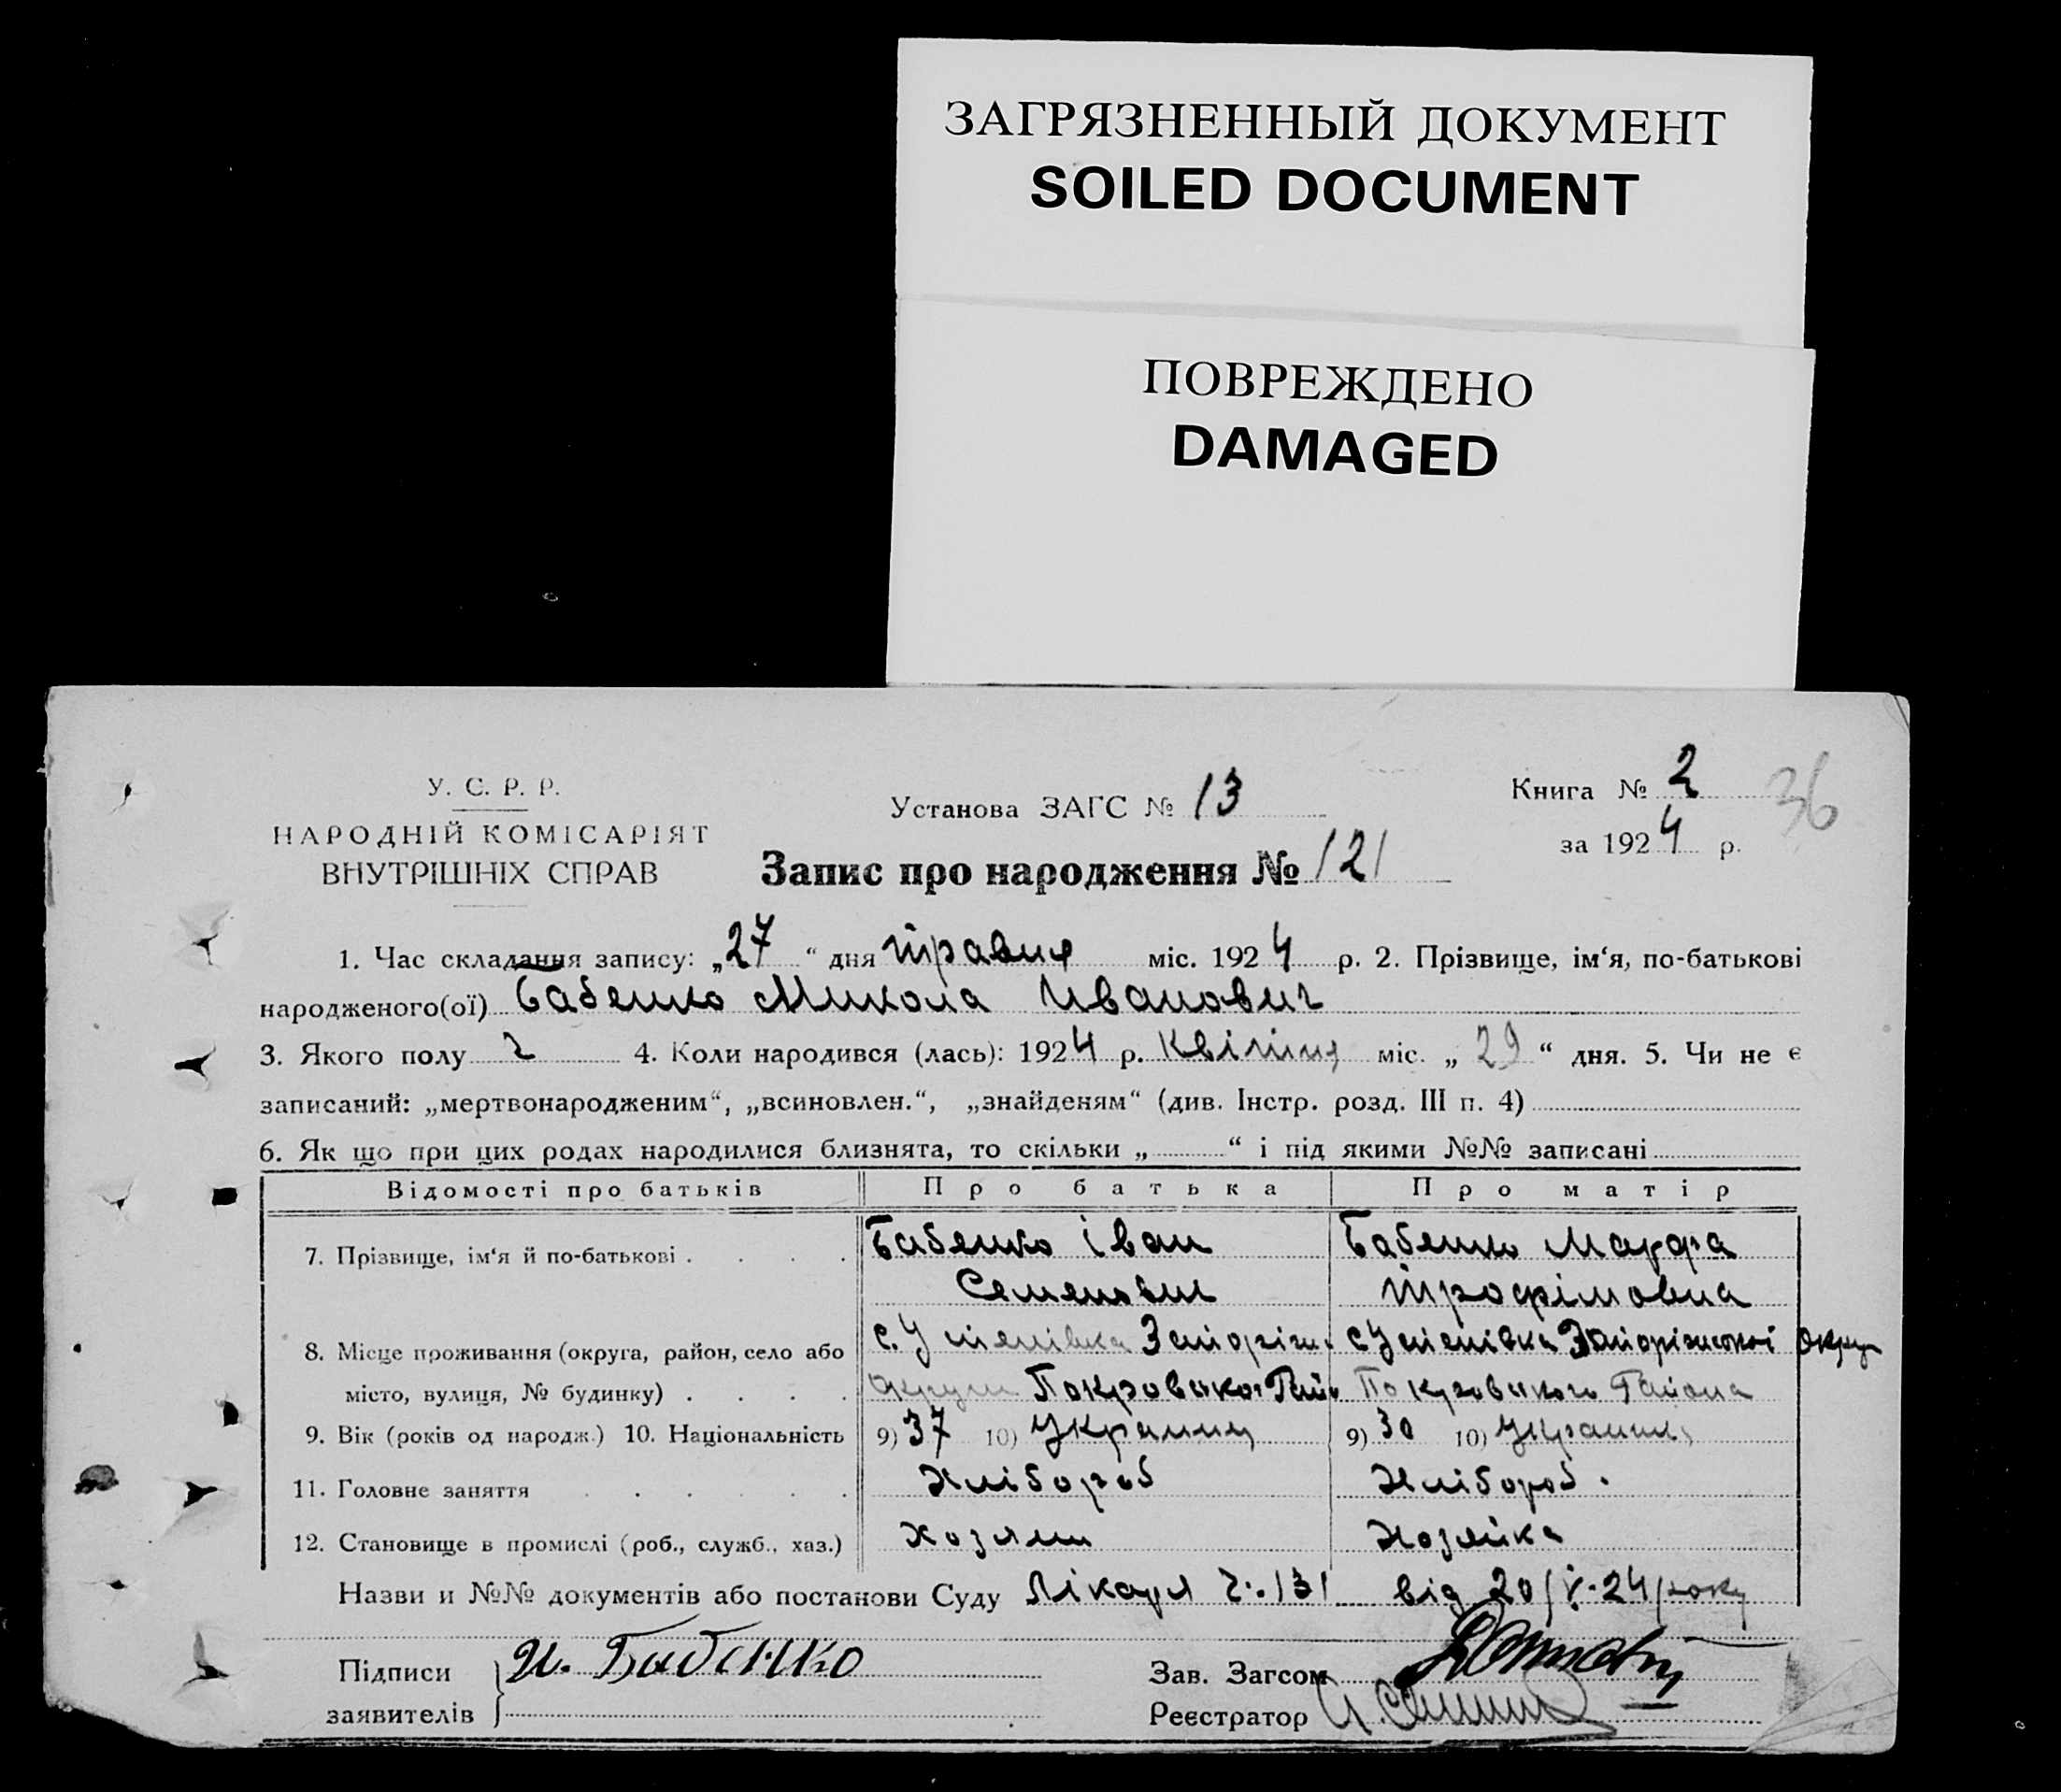 ЗАГРЯЗНЕННЫЙ ДОКУМЕНТ
SOILED DOCUMENT
ПОВРЕЖДЕНО
DAMAGED
У. С. Р. Р.
НАРОДНІЙ КОМІСАРІЯТ
ВНУТРІШНІХ СПРАВ
Установа ЗАГС № 13
Книга № 2 36
за 1924 р.
Запис про народження № 121
1. Час складання запису: „27“ дня травня міс. 1924 р. 2. Прізвище, ім‘я, по-батькові
народженого(ої) Бабенко Микола Иванович
3. Якого полу ч 4. Коли народився (лась): 1924 р. Квітня міс. „29“ дня. 5. Чи не є
записаний: „мертвонародженим“, „всиновлен.“, „знайденям“ (див. Інстр. розд. III п. 4)
6. Як що при цих родах народилися близнята, то скільки „ “ і під якими №№ записані
Відомості про батьків Про батька Про матір
7. Прізвище, ім‘я й по-батькові . . . . Бабенко Іван Бабенко Марфа
Семенович Трофімовна
8. Місце проживання (округа, район, село або с. Успенівка Запоріж с. Успенівка Запоріжської округи
місто, вулиця, № будинку) . . . . округи Покровського Рай Покровського Района
9. Вік (років од народж.) 10. Національність 9) 37 10) Украинц 9) 30 10)
11. Головне заняття . . . . . . Хлібороб Хлібороб.
12. Становище в промислі (роб., служб., хаз.) Хозяин Хозяйка
Назви и №№ документів або постанови Суду Лікаря ч. 131 від 20/V-24 року
Підписи И. Бабенко Зав. Загсом
заявителів Реєстратор